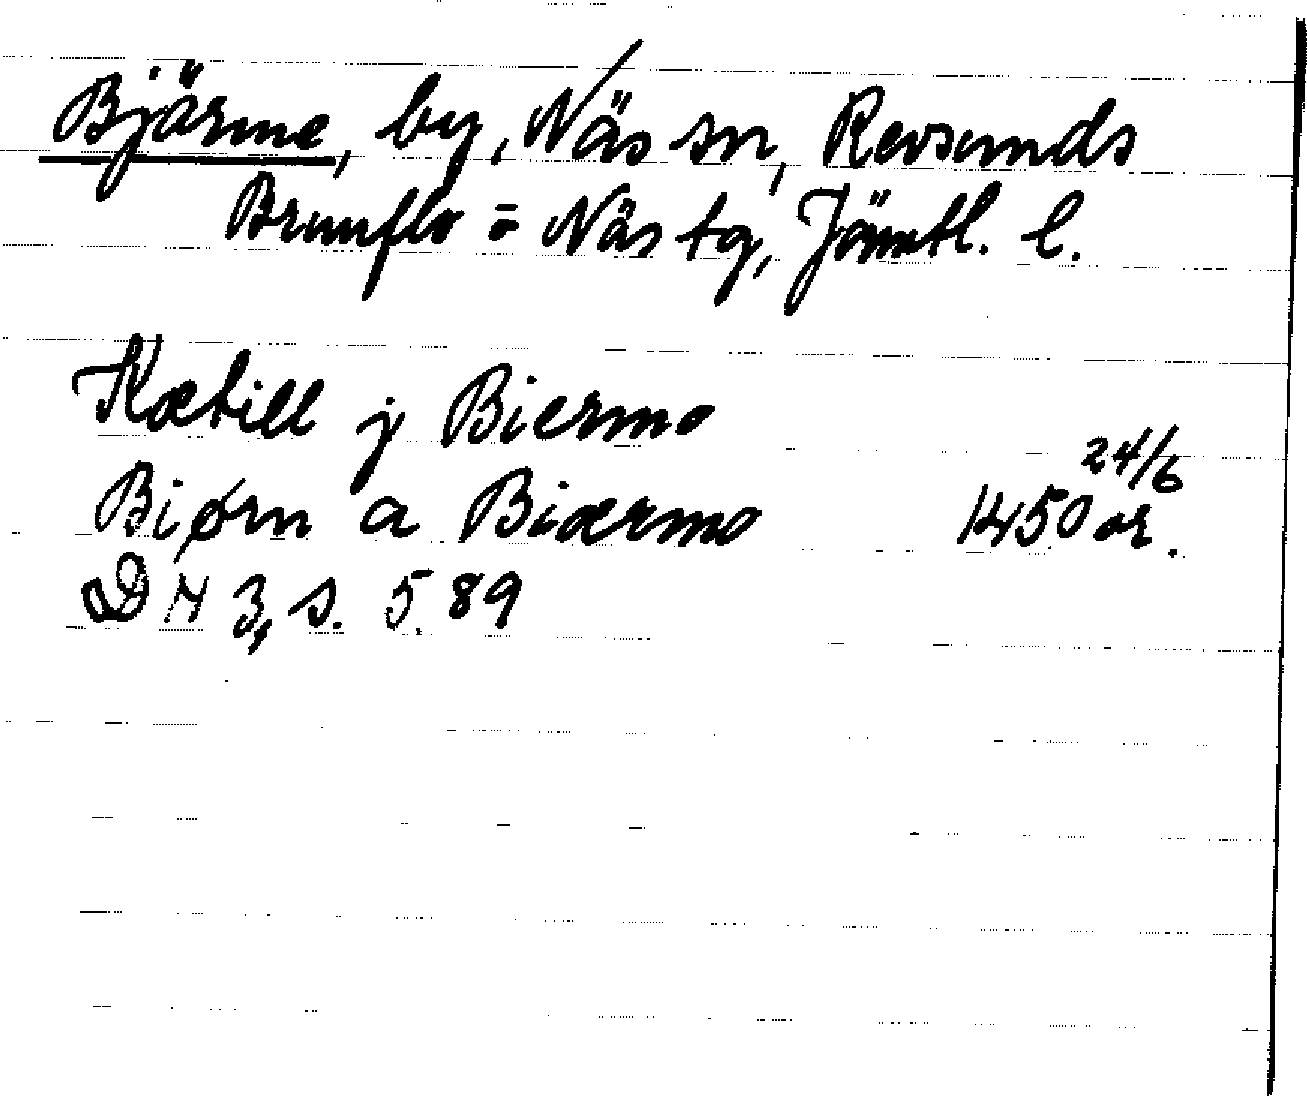 Bjärme, by, Näs sn, Revsunds
Brunflo = Näs tg, Jämtl. l.
Kætill j Biermo
Biørn a Biærmo 24/6 1450 or.
DN 3, s. 589